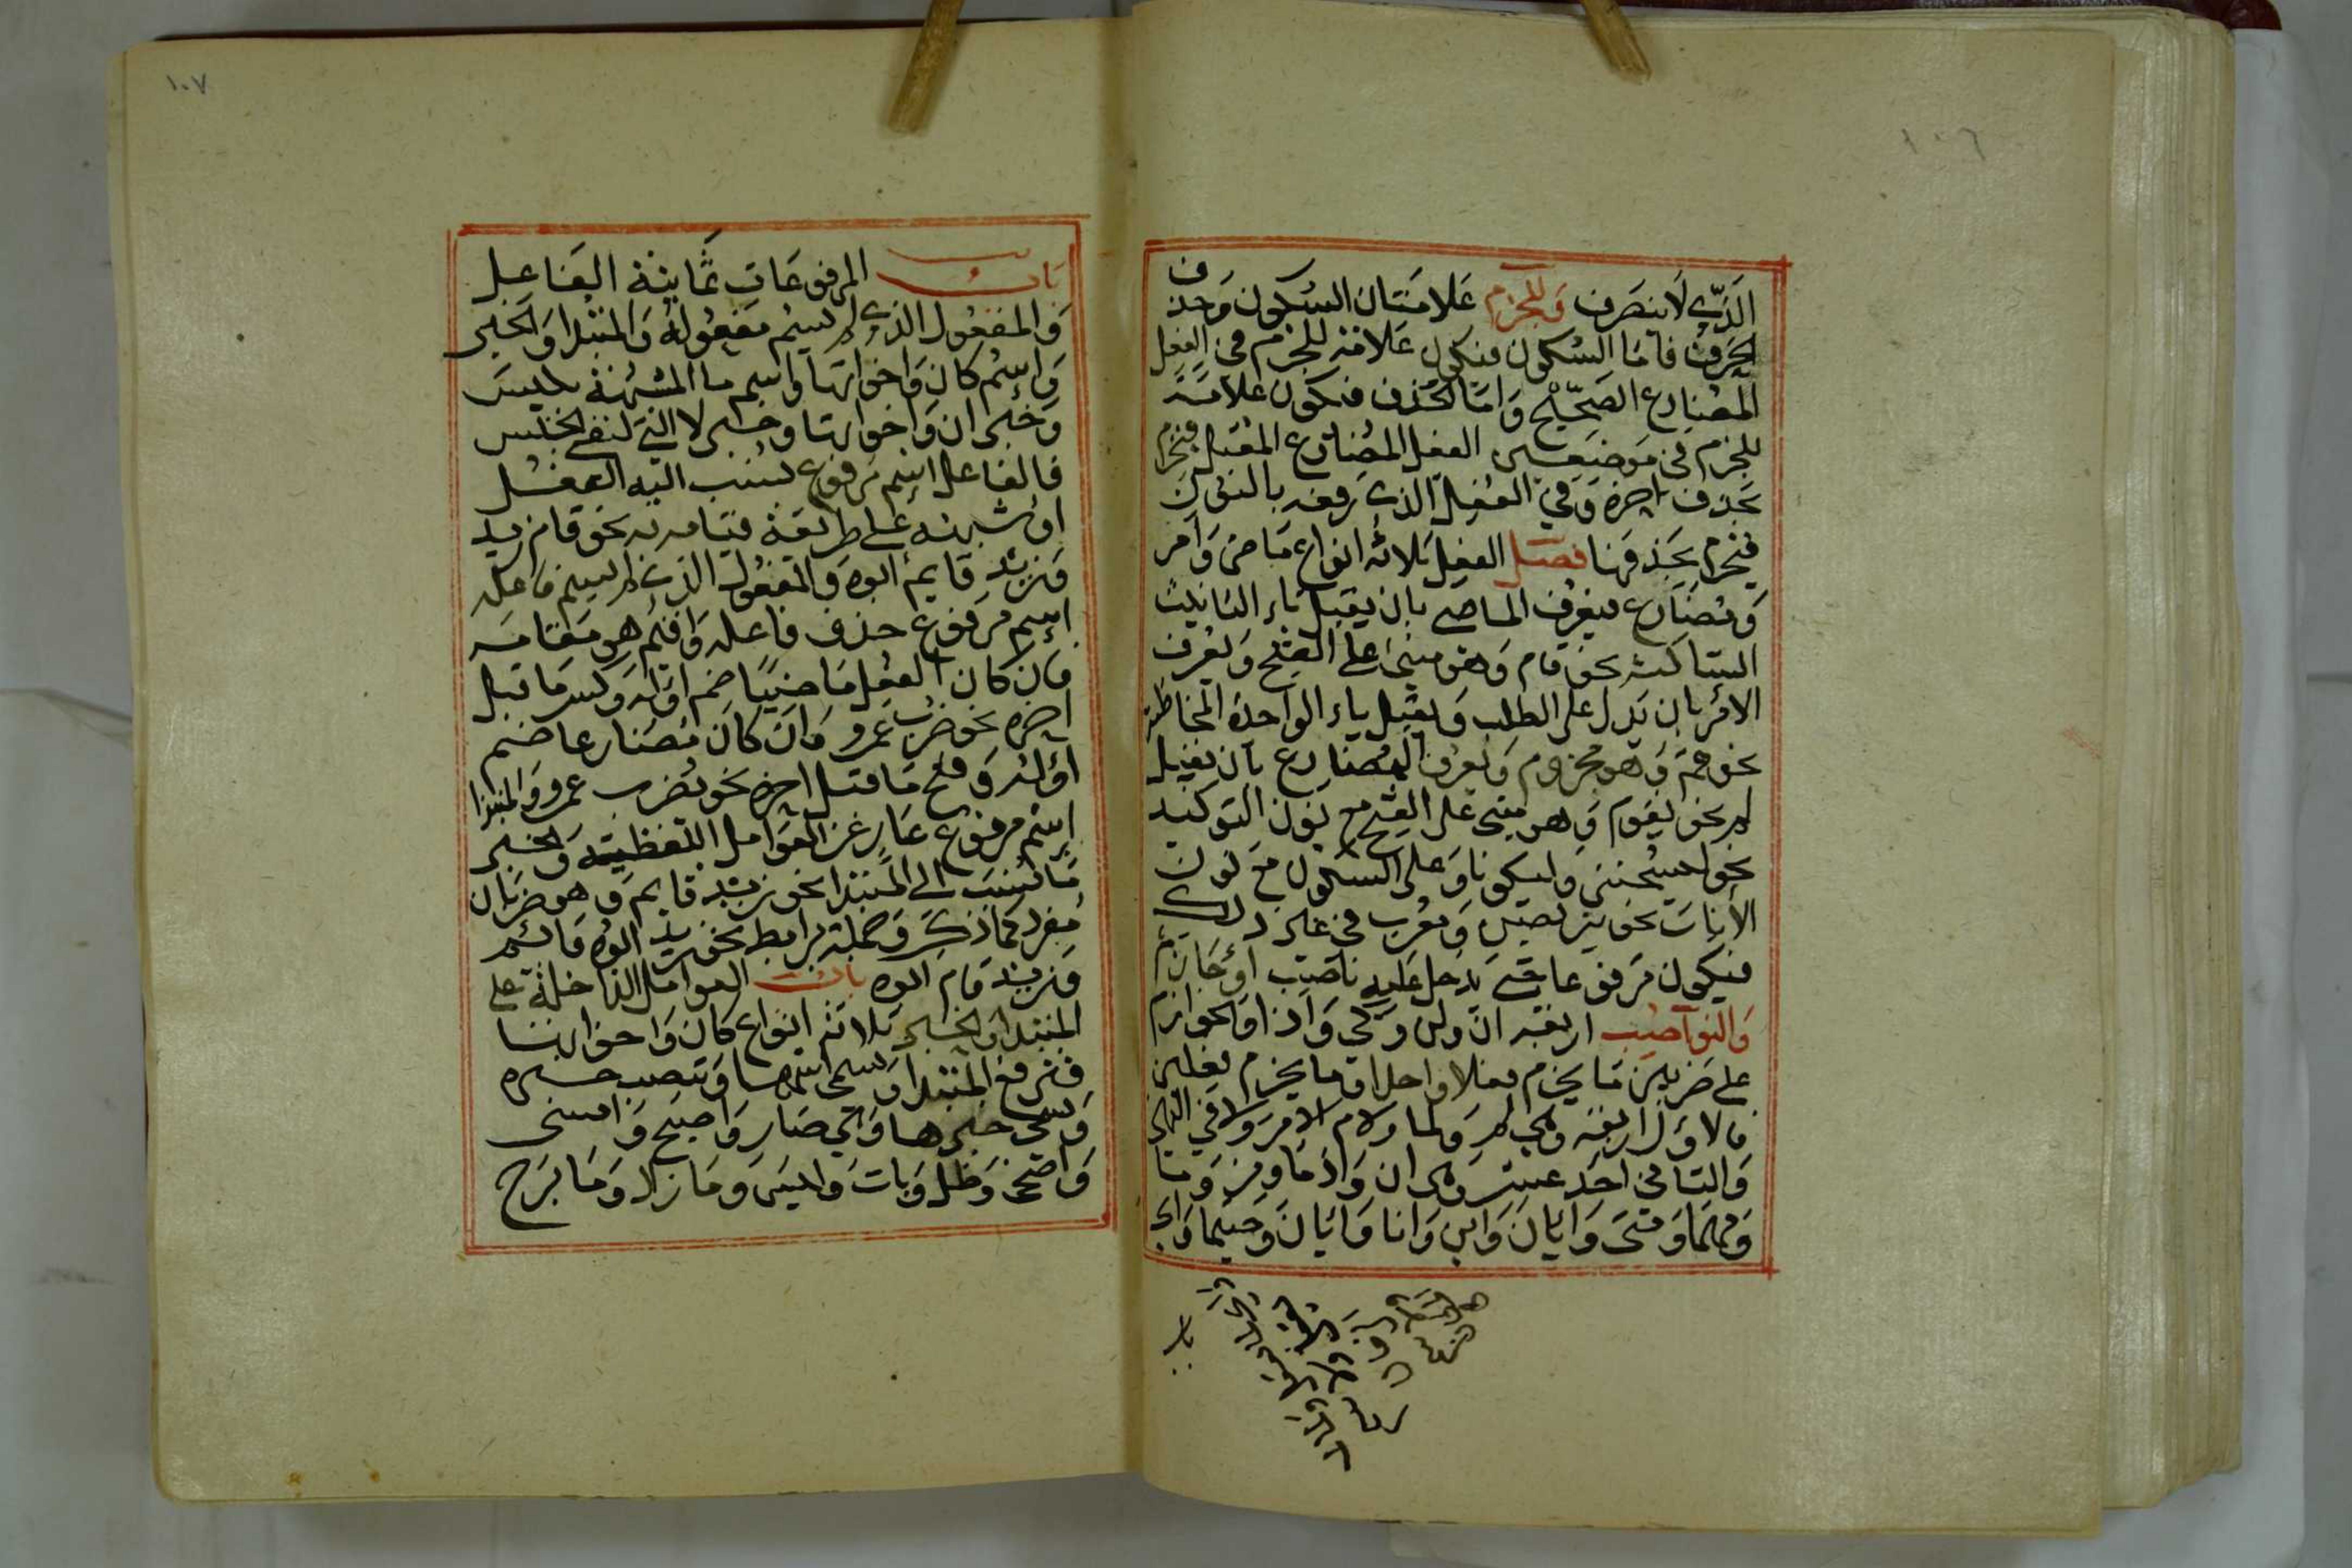 ١٠٦
الذي لا ينصرف وللجزم علامتان السكون وحذف
الحرف فاما السكون فيكون علامة للجزم في الفعل
المضارع الصحيح واما الحذف فيكون علامة
للجزم في موضعين الفعل المضارع المعتل فيجزم
بحذف اخره وفي الفعل الذي رفعه بالنون
فيجزم بحذفها فصل الفعل ثلاثه انواع ماض وامر
ومضارع فيعرف الماضي بان يقبل تاء التانيث
الساكنة نحو قام وهو مبني على الفتح ويعرف
الامر بان يدل على الطلب ويقبل ياء الواحدة المخاطبة
نحو قم وهو مجزوم ويعرف المضارع بان يقبل
لم نحو يقوم وهو مبني على الفتح مع نون التوكيد
نحو ليسجنن وليكونا وعلى السكون مع نون
الاناث نحو يتربصن ويعرب في غير ذلك
فيكون مرفوعا حتى يدخل عليه ناصب او جازم
والنواصب اربعة ان ولن وكي واذا والجوازم
على ضربين ما يجزم فعلا واحدا وما يجزم فعلين
فالاول اربعه وهي لم ولما ولام الامر ولا في النهي
والثاني احد عشر وهي ان واذما ومن وما
ومهما ومتى وايان واين وانا وايان وحيثما واي
باب
١٠٧
باب المرفوعات ثمانية الفاعل
والمفعول الذي لم يسم مفعوله والمبتدا والخبر
واسم كان واخواتها واسم ما المشبهة بليس
وخبر ان واخواتها وخبر لا التي لنفي الجنس
فالفاعل اسم مرفوع نسب اليه الفعل
او شبهه على طريقة قيامه به نحو قام زيد
وزيد قايم ابوه والمفعول الذي لم يسم فاعله
اسم مرفوع حذف فاعله واقيم هو مقامه
فان كان الفعل ماضيا ضم اوله وكسر ما قبل
اخره نحو ضرب عمرو وان كان مضارعا ضم
اوله وفتح ما قبل اخره نحو يضرب عمرو والمبتدا
اسم مرفوع عار عن العوامل اللفظية والخبر
ما نسب الى المبتدا نحو زيد قايم وهو ضربان
مفرد كما ذكر وجملة برابط نحو زيد ابوه قائم
وزيد قام ابوه باب العوامل الداخلة على
المبتدا والخبر ثلاثة انواع كان واخواتها
فترفع المبتدا ويسمى اسمها وتنصب خبره
ويسمى خبرها وهي صار واصبح وامسى
واضحى وظل وبات وليس وما زال وما برح